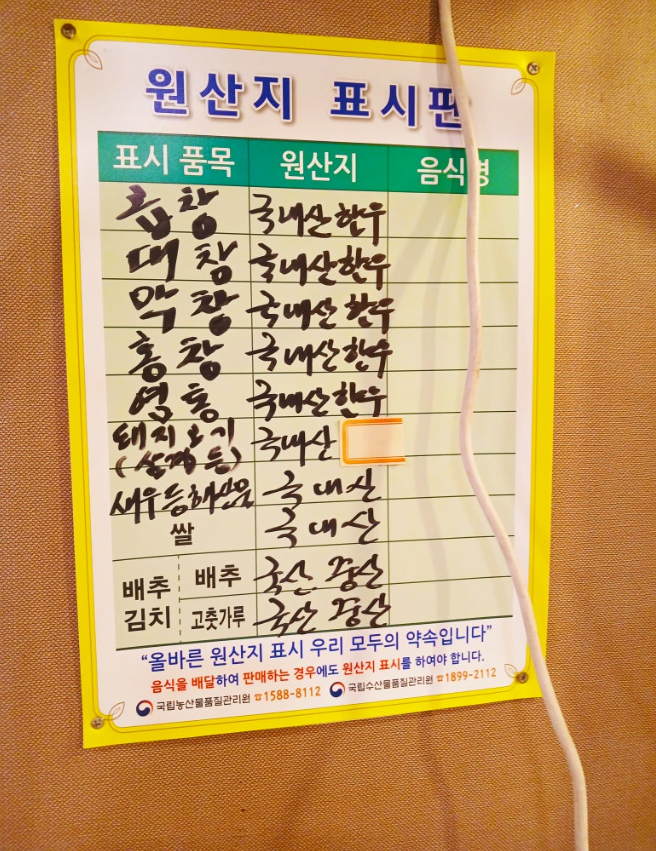 원산지 표시판
표시 품목 원산지 음식명
곱창 국내산 한우
대창 국내산 한우
막창 국내산 한우
홍창 국내산 한우
염통 국내산 한우
돼지고기 국내산
새우등해산물 국내산
쌀 국내산
배추 김치 배추 국산 중산
고춧가루 국산 중산
“올바른 원산지 표시 우리 모두의 약속입니다”
음식을 배달하여 판매하는 경우에도 원산지 표시를 하여야 합니다.
국립농산물품질관리원 ☎1588-8112 국립수산물품질관리원 ☎1899-2112